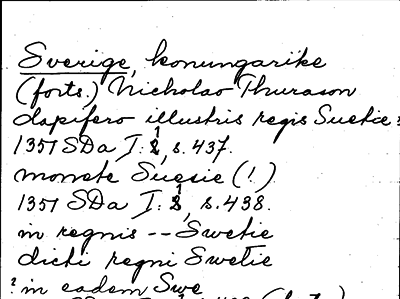 Sverige, konungarike
(forts.) Nicholao Thurason
dapifero illustris regis Suetie:
1351 SDa I:1, s. 437.
monete Suesie (!)
1351 SDa I:1, s. 438.
in regnis -- Swetie
dicti regni Swetie
? in eadem Swe